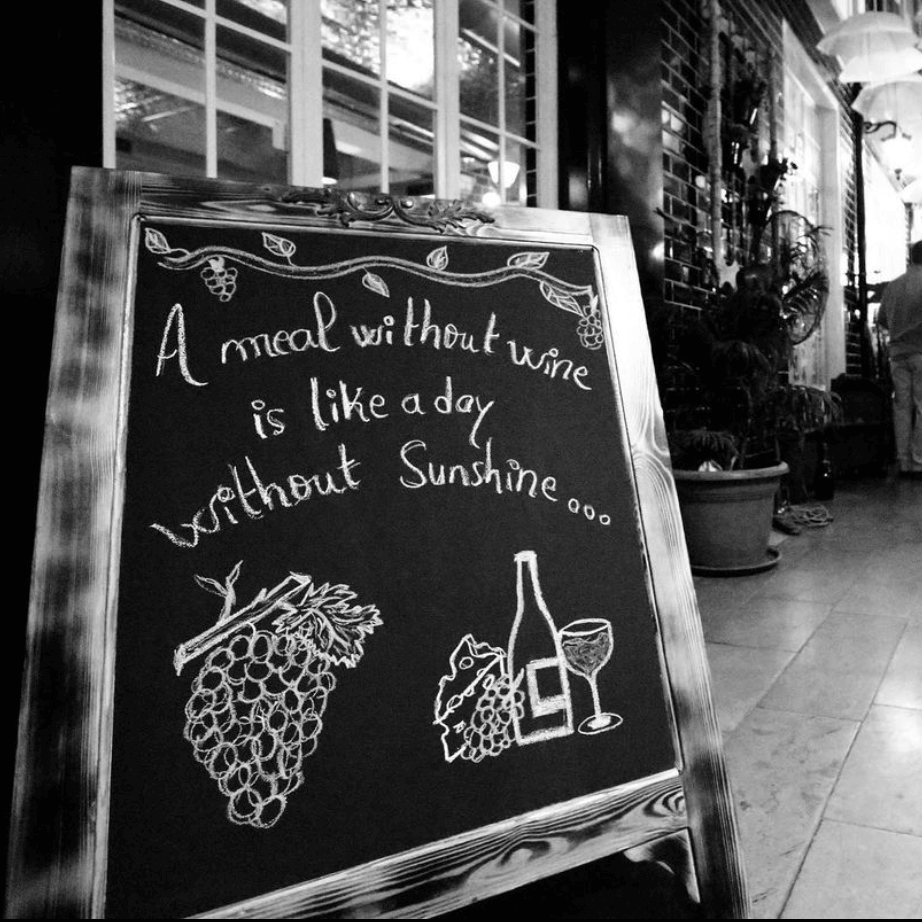 A meal without wine
is like a day
without Sunshine...